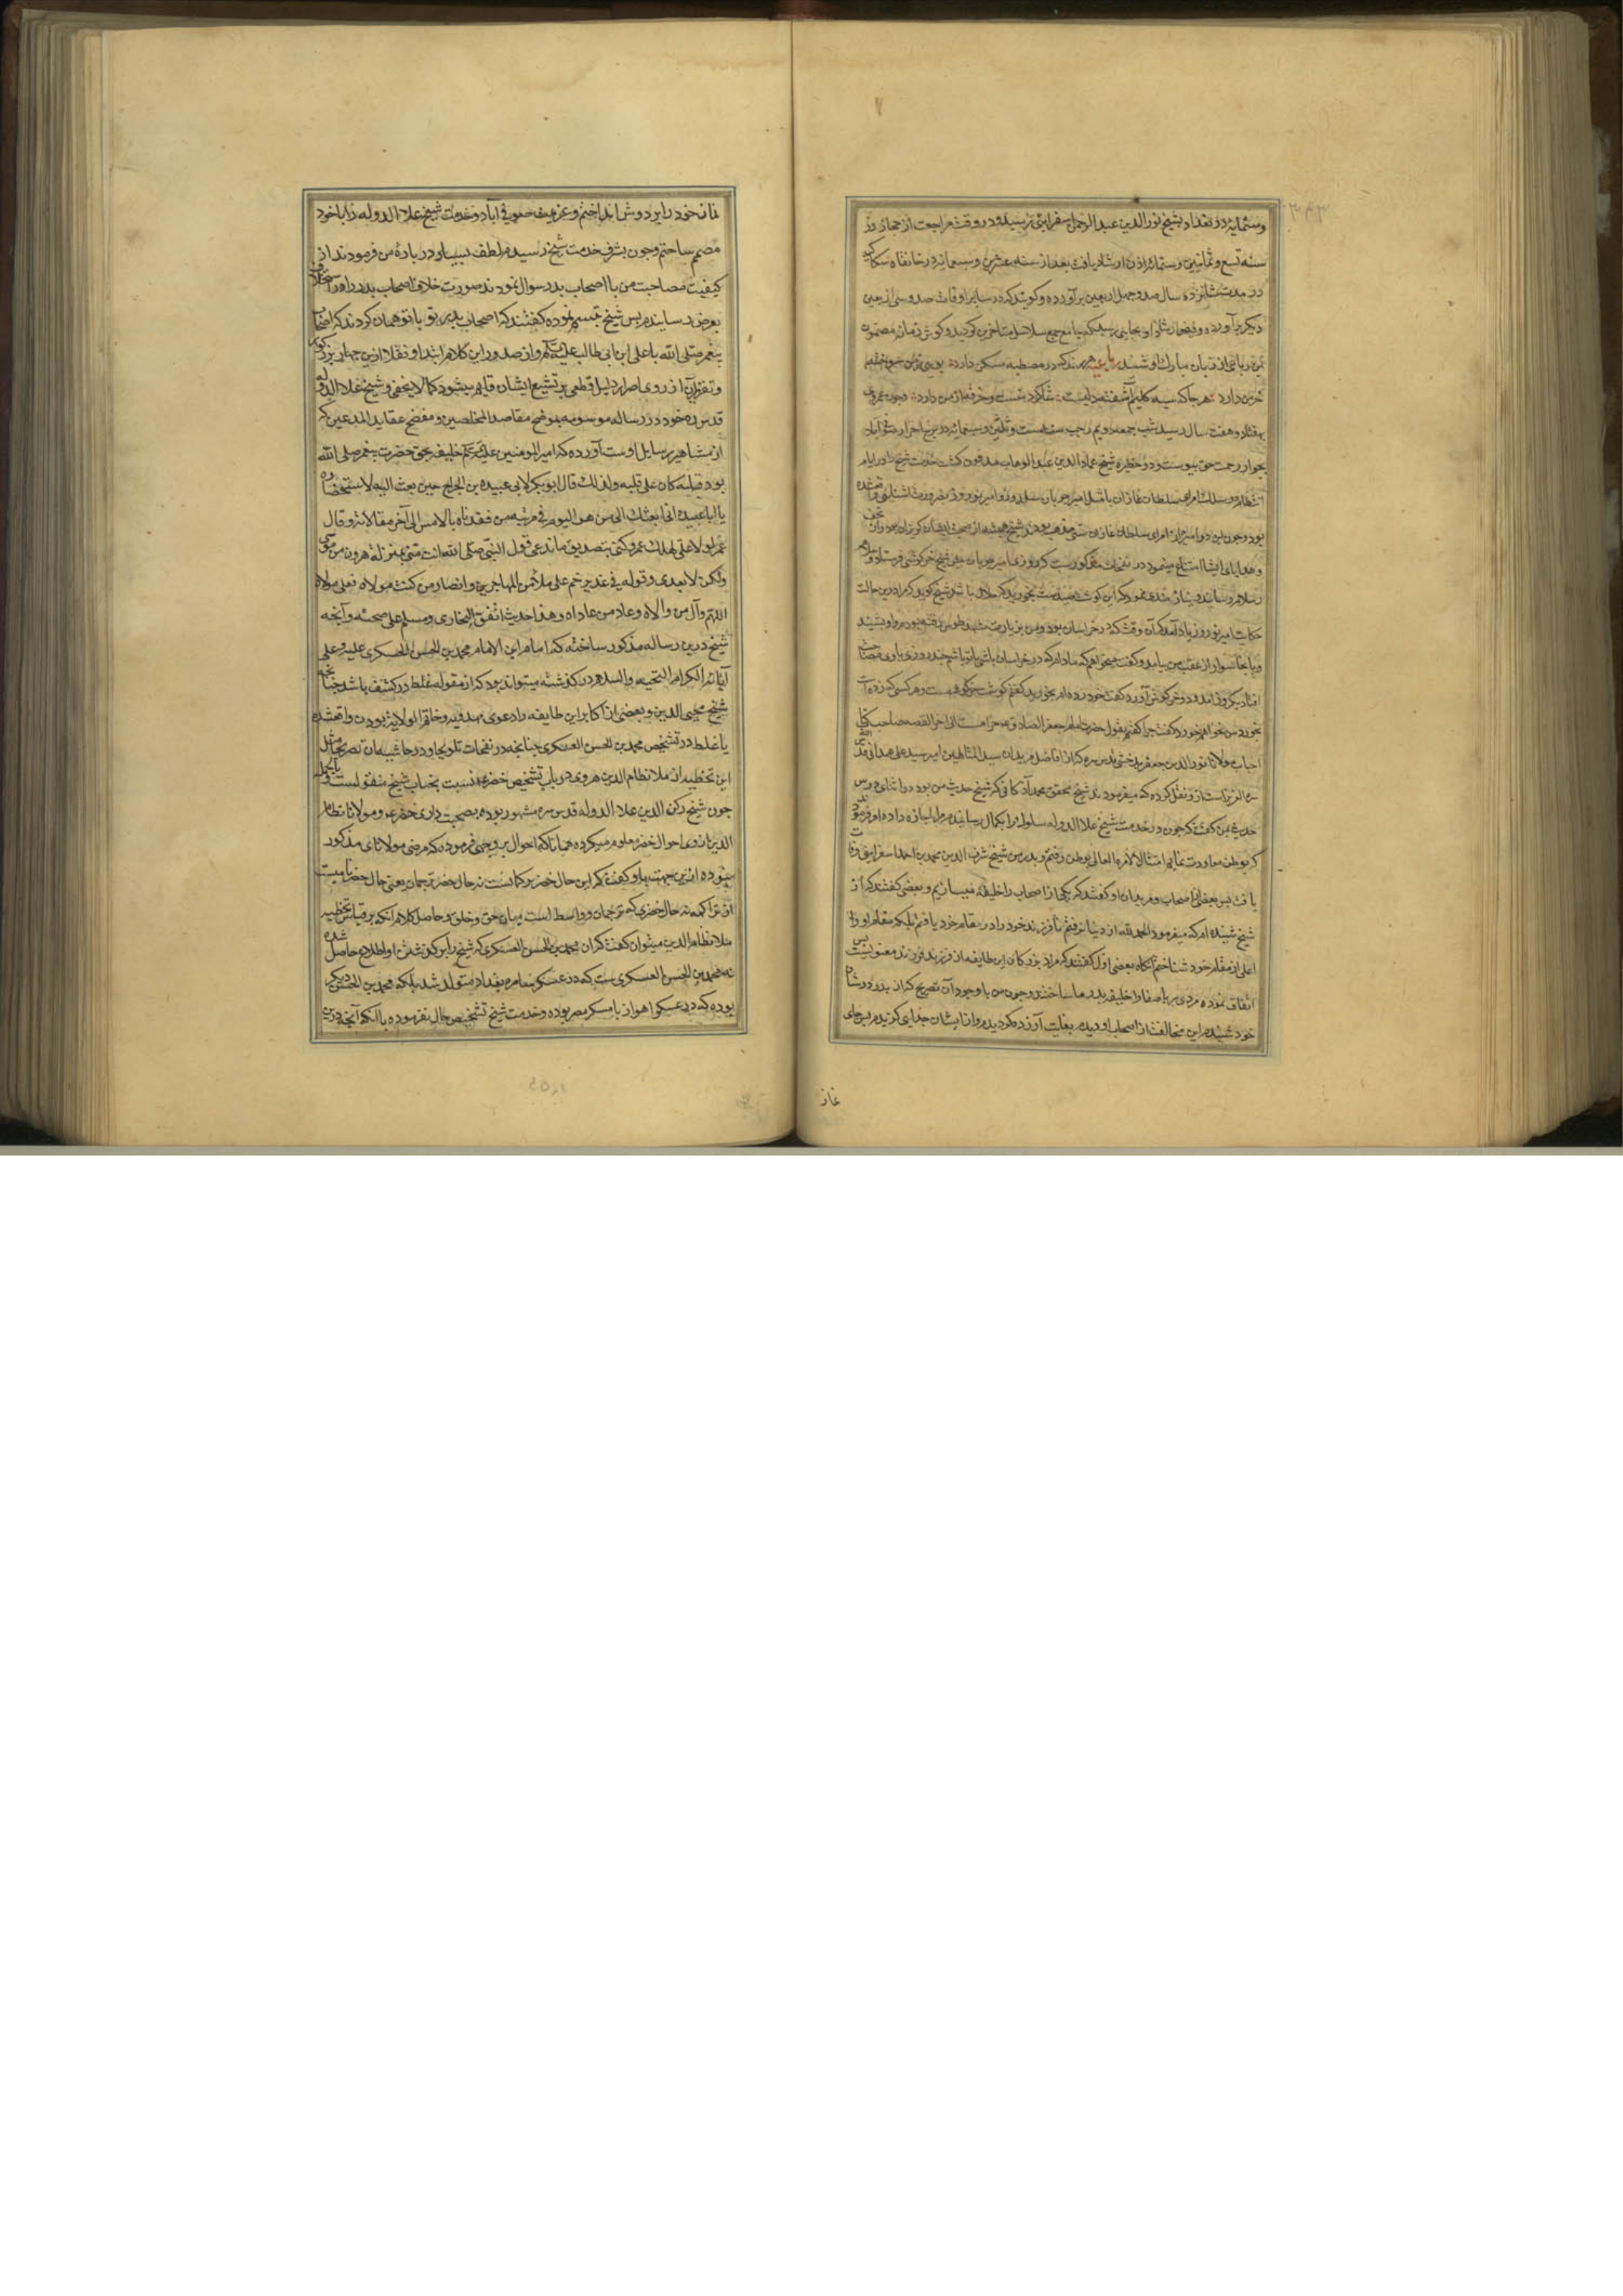 وستمایه در بغداد بشیخ نورالدین عبدالرحمن اسفراینی رسیده و در وقت مراجعت از حجاز در
سنه تسع و ثمانین و ستمائه اذن ارشاد یافت بعد از سنه عشرین و سبعمائه در خانقاه سکاکیه
در مدت شانزده سال صد و چهل اربعین برآورده و کویند که در سایر اوقات صد و سی اربعین
دیگر برآورده و فیض ارشاد او بجایی رسید که جامع جمیع سلاسل متاخرین کردید و کوش زمان مضمون
این رباعی از زبان مبارک او شنید رباعیه هر رند که در مصطبه مسکن دارد
خرمن دارد هر جا که سیه کلیم آشفته دلیست شاکرد منست و خرقه از من دارد و چون عمر وی
بهفتاد و هفت سال رسید شب جمعه بیست و دویم رجب سنه ست و ثلثین و سبعمائه در برج احرار صوفی آباد
بجوار رحمت حق پیوست و در حظیره شیخ عمادالدین عبدالوهاب مدفون کشت خدمت شیخ را در ایام
بود و چون این دو امیر از امرای سلطان غازان سنی مذهب بودند شیخ همیشه از صحبت ایشان کریزان بود و از
و هدایای ایشان امتناع مینمود در نفحات مذکورست که روزی امیر چوپان پیش شیخ خرکوشی فرستاد و سلام
رسلام رسانید و نیازمندی نمود که این کوشت صید است بخورید که حلال باشد شیخ کوید که مرا در این حالت
حکایت امیر نوروز یاد آمد که آن وقت که در خراسان بود و من بزیارت مشهد طوس رفته بودم او بشنید
و با پنجاه سوار از عقب من بیامد و کفت میخواهم که مادام که در خراسان باشی با تو باشم چند روزی با وی مصاحبت
افتاد یک روز آمد و دو خرکوش آورد که کفت خود زده ام بخورید کفتم کوشت خرکوشست و هر کس که زده است
بخورد من نخواهم خورد کفت چرا کفتم بقول حضرت امام جعفر الصادق ع حرامست الی آخر القصه صاحب کتاب
احباب مولانا نورالدین جعفر بدخشی قدس سره که از افاضل مریدان سید المتالهین امیر سید علی همدانی قدس الله
سره العزیز است از و نقل کرده که میفرمودند شیخ محقق محمد آذکانی که شیخ حدیث من بود در اثنای درس
حدیث بمن کفت که چون در خدمت شیخ علاالدوله سلوک را بکمال رسانیدم مرا اجازه داد و امر فرمودند
که بوطن معاودت نمایم امتثالا لامره العالی بوطن رفتم و پدر من شیخ شرف الدین محمد بن احمد اسفراینی وفات
یافت پس بعضی از اصحاب و مریدان او کفتند که یکی از اصحاب را خلیفه میسازیم و بعضی کفتند که از
شیخ شنیده ام که میفرمود الحمد لله از دنیا نرفتم تا فرزند خود را در مقام خود یافتم بلکه مقام او را
اعلی از مقام خود شناختم آنکاه بعضی اول کفتند که مراد بزرکان این طایفه از فرزند فرزند معنویست پس
اتفاق نموده مردی بر یاصفا را خلیفه پدر ما ساختند و چون من با وجود آن تصریح که از پدر در شام
خود شنیدم این مخالفت از اصحاب او دیدم بغایت آزرده کردیدم و از ایشان جدایی کزیدم پس جای
غاز
نماز خود را بر دوش انداختم و عزیمت صوفی آباد و خدمت شیخ علاءالدوله را با خود
مصمم ساختم و چون بشرف خدمت شیخ رسیدم لطف بسیار در باره من فرمودند از
کیفیت مصاحبت من با اصحاب پدر سوال نمودند صورت خلاف اصحاب پدر را در استخلاف
بعرض رسانیدم پس شیخ تبسم نموده کفتند که اصحاب پدر تو با تو همان کردند که اصحاب
پیغمبر صلی الله با علی ابن ابی طالب علیه السلام و از صدور این کلام ابتداء و نقلا ازین چهار بزرکوار
و تقریر آن از روی اصرار دلیل قطعی بر تشیع ایشان قایم میشود کما لایخفی و شیخ علاءالدوله
قدس سره خود در رساله موسومه بموضح مقاصد المخلصین و مفضح عقاید المدعین که
از مشاهیر رسایل اوست آورده که امیرالمومنین علیه السلام خلیفه بحق حضرت پیغمبر صلی الله
بود قبلیه کان علی قلبه ولذلک قال ابوبکر لابی عبیده بن الجراح حین بعث الیه لاستحضاره
یا ابا عبیده انا ابعثک الی من هو الیوم فی مرتبه من فقدناه بالامس الی آخر مقالاته و قال
عمر لولا علی لهلک عمر و کفی بتصدیق ما ندعی قول النبی صلی الله انت منی بمنزله هرون من موسی
ولکن لا نبی بعدی و قوله فی غدیر خم علی ملاء من المهاجرین و انصار من کنت مولاه فعلی مولاه
اللهم وال من والاه و عاد من عاداه و هذا حدیث اتفق البخاری و مسلم علی صحته و آنچه
شیخ درین رساله مذکور ساخته که امام ابن الامام محمد بن الحسن العسکری علیه و علی
آبائه الکرام التحیه و السلام در کذشته میتواند بود که از مقوله غلط در کشف باشد چنانچه
شیخ محیی الدین و بعضی از اکابر این طایفه را دعوی مهدویه و خاتم الولایه بودن واقعشده
یا غلط در تشخیص محمد بن الحسن العسکری چنانچه در نفحات تلویحا و در حاشیه آن تصریحا مثل
این تخطیه از ملا نظام الدین هروی در باب تشخیص خضر ع نسبت بجناب شیخ منقولست و بالجمله
چون شیخ رکن الدین علاءالدوله قدس سره مشهور بوده بصحبت داری خضر ع و مولانا نظام
الدین از وی احوال خضر معلوم میکرده همانا که احوال بر وجهی فرموده که مرضی مولانای مذکور
نبوده ازین جهت باو کفت که این حال خضر ترکمانست نه حال خضر ترجمان یعنی حال خضر نامیست
از تراکمه نه حال خضری که ترجمان و واسطه است میان حق و خلق و حاصل کلام آنکه بر قیاس تخطیه
ملا نظام الدین میتوان کفت که آن محمد بن الحسن العسکری که شیخ را بر کوشش او اطلاع حاصل شده
نه محمد بن الحسن العسکری ست که در عسکر سامره بغداد متولد شد بلکه محمد بن الحسن دیکر
بوده که در عسکر اهواز یا عسکر مصر بوده و خدمت شیخ تشخیص حال نفرموده با آنکه آنچه درین